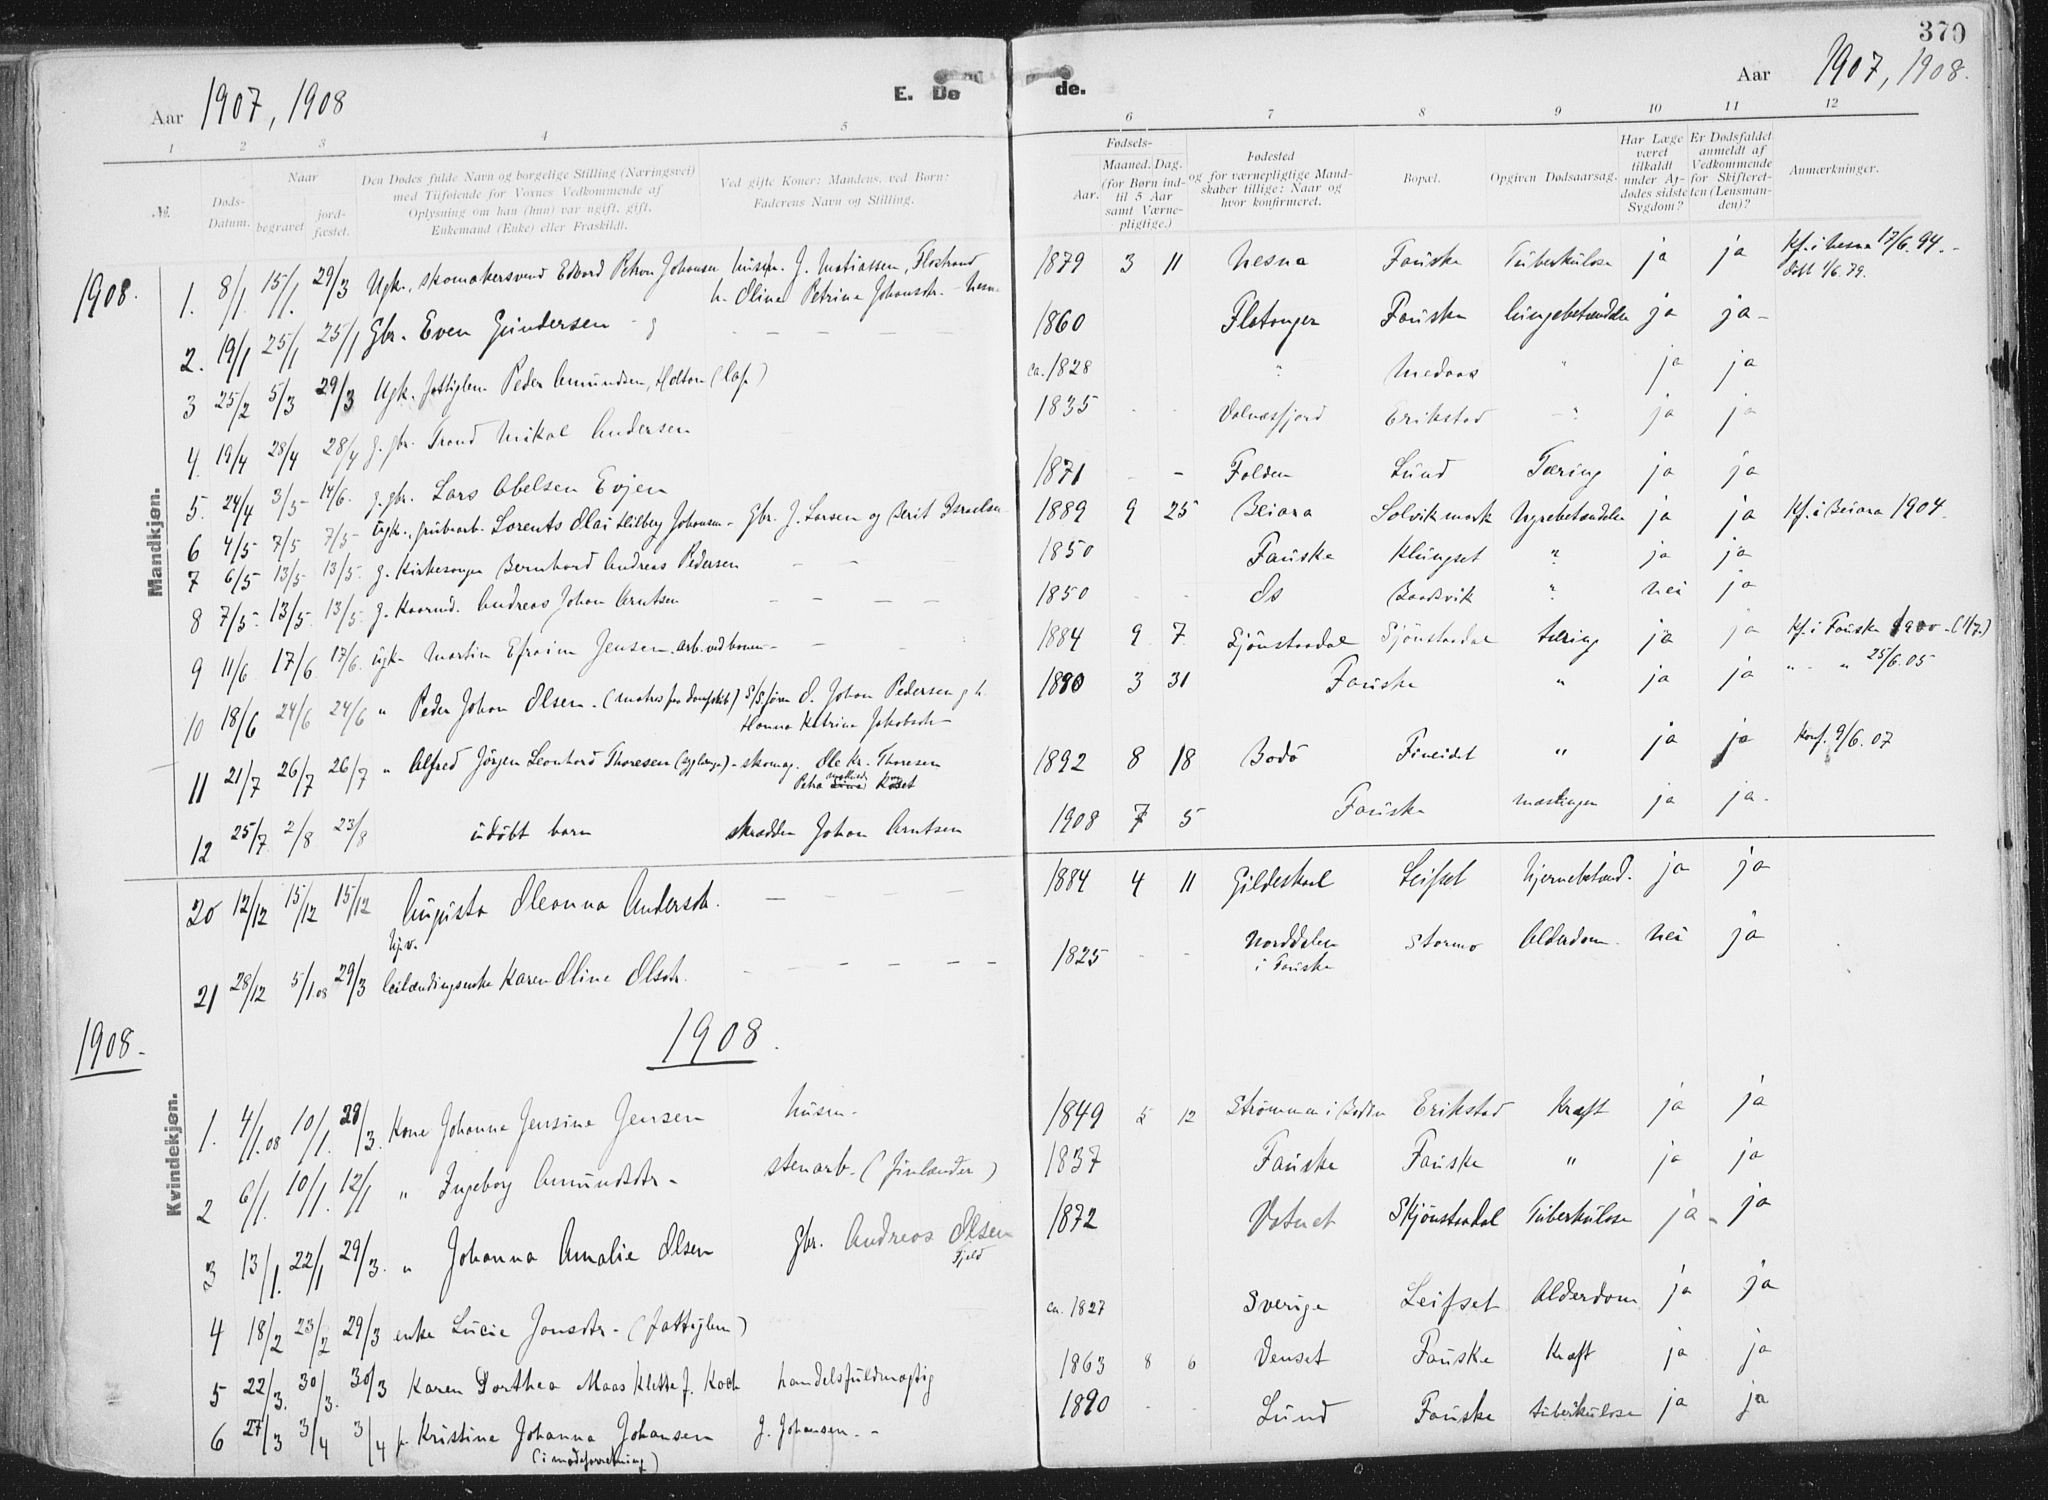 370
Aar 1907, 1908
E. De de.
Aar 1907, 1908.
1 2 3 4 5 6 7 8 9 10 11 12
No.
Døds-Datum.
Naar
begravet
jord-fæstet.
Den Dødes fulde Navn og borgelige Stilling (Næringsvei)
med Tilføiende for Voxnes Vedkommende af
Oplysning om han (hun) var ugift, gift,
Enkemand (Enke) eller Fraskildt.
Ved gifte Koner: Mandens, ved Børn:
Faderens Navn og Stilling.
Fødsels-
Aar.
Maaned.
Dag.
(for Børn ind-
til 5 Aar
samt Værne-
pligtige.)
Fødested
og for værnepligtige Mand-
skaber tillige: Naar og
hvor konfirmeret.
Bopæl.
Opgiven Dødsaarsag.
Har Læge
været
tilkaldt
under Af-
dødes sidste
Sygdom?
Er Dødsfaldet
anmeldt af
Vedkommende
for Skifteret-
ten (Lensman-
den)?
Anmærkninger.
1908.
Mandkjøn.
1. 8/1. 15/1. 29/3 Ugk., skomakersvend Edvard Petter Johansen husm. J. Matiassen, Flostrand 1879 3 11 Nesna Fauske Tuberkulose ja ja Kf. i Nesna 17/6. 94.
h. Oline Petrine Johansdr. - Nesna døbt 1/6. 79.
2. 19/1 25/1 25/1 Gbr. Even Gundersen 1860 Flatanger Fauske lungebetændelse ja ja
3 25/2 5/3 29/3 Ugk. fattiglem Peder Amundsen, Holton (lap) ca. 1828 " Medaas " ja ja
4. 19/4 28/4 28/4 g. gbr. Trond Mikal Andersen 1835 Valnæsfjord Erikstad " ja ja
5. 24/4 3/5 14/6. g. gbr. Lars Abelsen Evjen 1871 Folden Lund Tæring ja ja
6 4/5 7/5 7/5 ugk., grubearb. Lorents Olai Hilberg Johansen - Gbr. J. Larsen og Berit Israelsen 1889 9 25 Beiarn Solvik mark Nyrebetændelse ja ja Kf. i Beiarn 1904.
7 6/5 13/5 13/5. g. Kirkesanger Bernhard Andreas Pedersen 1850 Fauske Klungset " ja ja
8 7/5. 13/5. 13/5. g. Kaarmd. Andreas Johan Arntsen 1850 Ds Baadsvik " nei ja
9 11/6 17/6 17/6. ugk. Martin Efraim Jensen. arb. ved banen 1884 9 7 Sjönstaadal Sjönstaadal tæring ja ja Kf. i Fauske 1900 - (1/7.)
10 18/6 24/6 24/6 " Peder Johan Olsen. (matros paa dampskib) S/S jøren O. Johan Pedersen g. h. 1890 3 31 Fauske " ja ja " " 25/6. 05
Hanna Katrine Jakobsdr.
11 21/7 26/7 26/7 " Alfred Jörgen Leonhard Thoresen (bygdunge) - skomag. Ole Kr. Thoresen 1892 8 18 Bodö Fineidet " ja ja Konf. 9/6. 07
Petra Koset
12 25/7 2/8 23/8 udöbt barn skrædder Johan Arntsen 1908 7 5 Fauske mæslinger ja ja.
20 12/12 15/12 15/12 Augusta Oleanna Andersdr. 1884 4 11 Gildeskaal Leifset Hjernebetænd. ja ja
21 28/12 5/1 08 29/3 leilændingsenke Karen Oline Olsdr. 1825 Norddalen Stormo Alderdom. nei ja
i Fauske
1908.
1908.
Kvindekjøn.
1. 4/1.08 10/1. 29/3. Kone Johanna Jensine Jensen husm. 1849 5 12 Strömmen i Bodin Erikstad Kræft ja ja
2 6/1. 10/1. 12/1 " Ingeborg Amundsdr. stenarb. (finlænder) 1837 Fauske Fauske " ja ja
3 13/1. 22/1 29/3. " Johanna Amalie Olsen Gbr. Andreas Olsen 1872 Vatnet Skjönstaadal Tuberkulose ja ja
Fjeld
4 18/2 23/2 29/3 enke Lucie Jonsdtr. (fattiglem) ca. 1827 Sverige Leifset Alderdom ja ja
5 22/3. 30/3. 30/3 Karen Dorthea Maas Klette f. Koch handelsfuldmægtig 1863 8 6 Venset Fauske Kræft ja ja
6 27/3 3/4 3/4 p. Kristine Johanna Johansen J. Johansen. 1890 Lund Fauske tuberkulose ja ja
(i modeforretning)